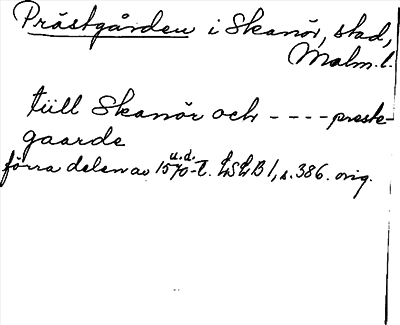 Prästgården i Skanör, stad,
Malm. l.
tüll Skanör och - - - - prestegaarde
förra delen av 1570-t. u.d. LSLB 1, s. 386. orig.